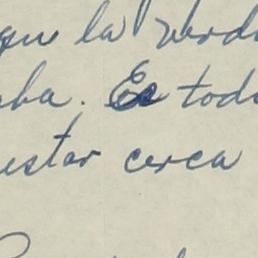 que la verda
aba. Es todo
estar cerca